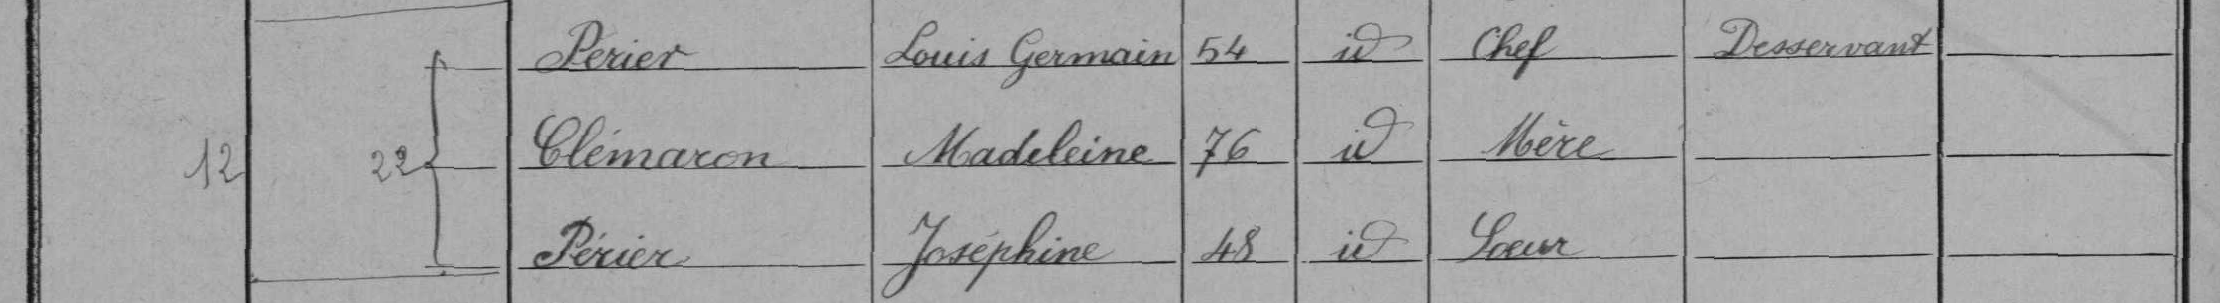 Périer Louis Germain 54 id Chef Desservant
12 22 Clémaron Madeleine 76 id Mère
Périer Joséphine 48 id Sœur